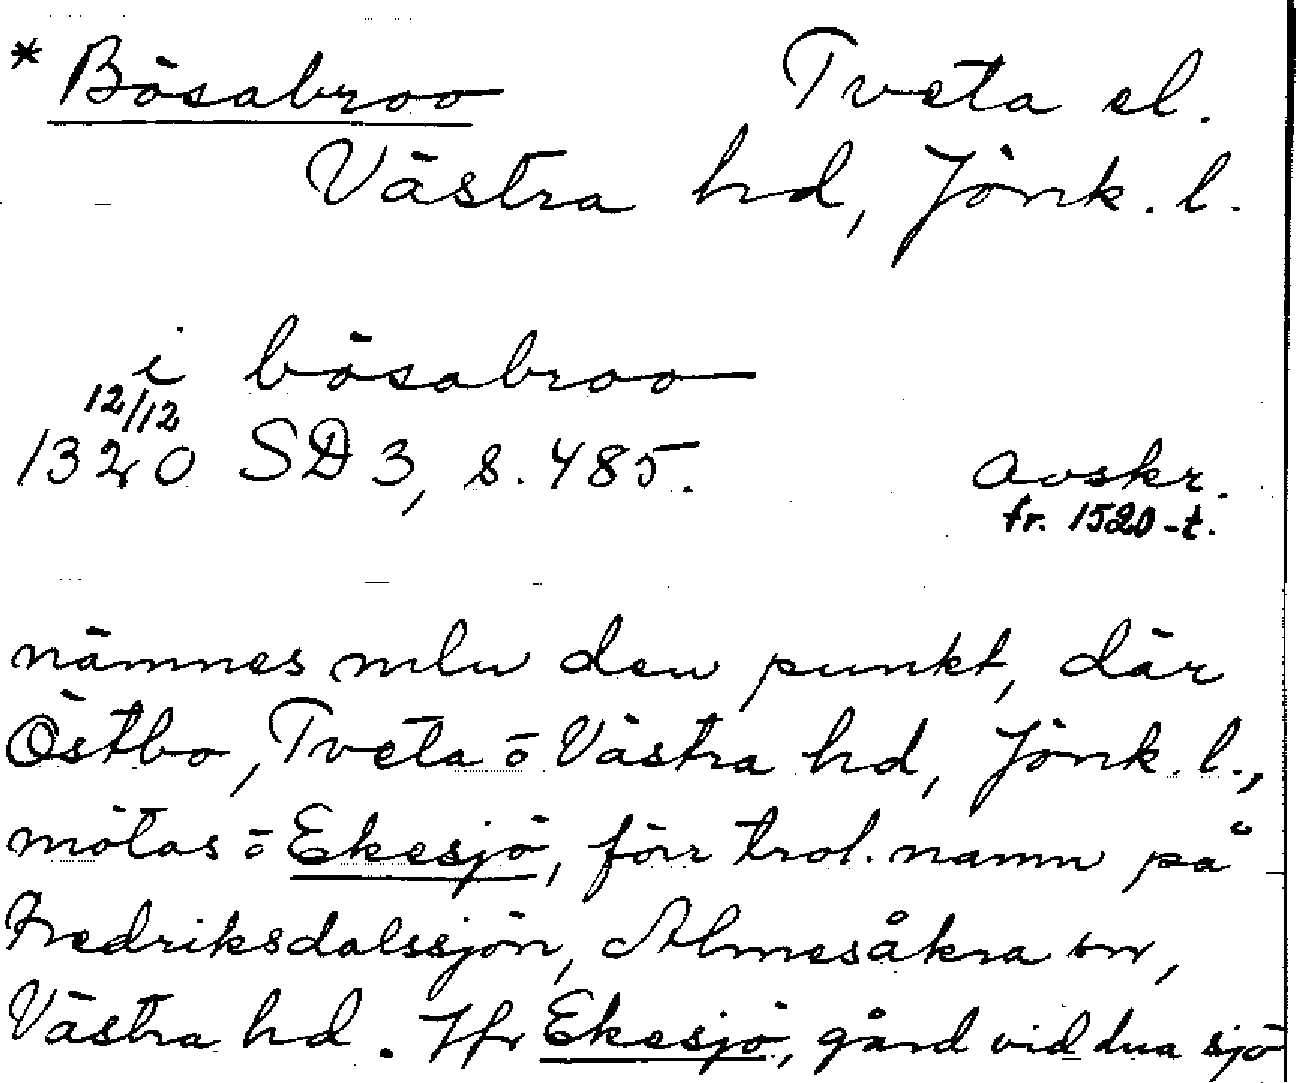 * Bösabroo Tveta el.
Västra hd, Jönk. l.
i bösabroo
12/12
1320 SD 3, s. 485. Avskr.
fr. 1520-t.
nämnes mlu den punkt, där
Östbo, Tveta o Västra hd, Jönk. l.,
mötas o Ekesjö, förr trol. namn på
Fredriksdalssjön, Almesåkra sn,
Västra hd. Jfr Ekesjö, gård vid dna sjö